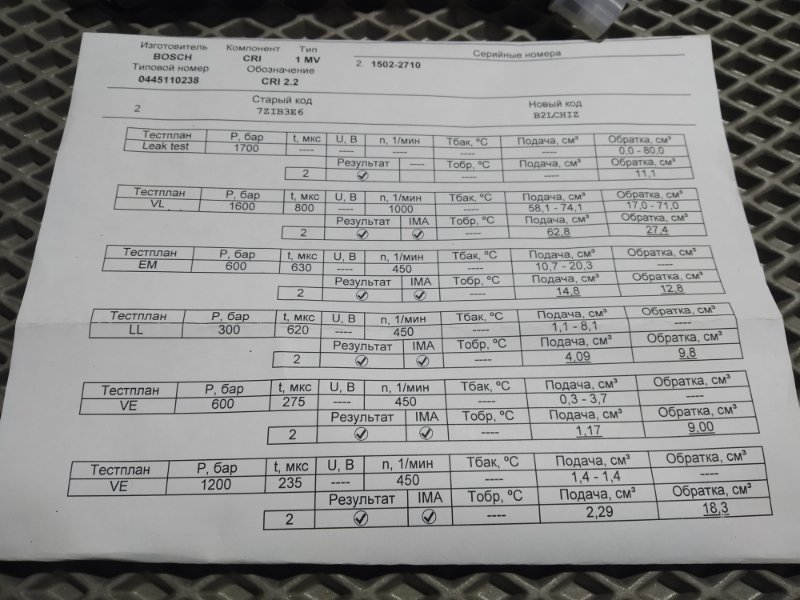 Изготовитель Компонент Тип Серийные номера
BOSCH CRI 1 MV 2. 1502-2710
Типовой номер Обозначение
0445110238 CRI 2.2
Старый код Новый код
2 7ZIB3E6 B2LCHIZ
Тестплан P, бар t, мкс U, В n, 1/мин Тбак, ºC Подача, см³ Обратка, см³
Leak test 1700 ---- ---- ---- ---- ---- 0,0 - 80,0
Результат ---- Тобр, ºC Подача, см³ Обратка, см³
2 ---- ---- 11,1
Тестплан P, бар t, мкс U, В n, 1/мин Тбак, ºC Подача, см³ Обратка, см³
VL 1600 800 ---- 1000 ---- 58,1 - 74,1 17,0 - 71,0
Результат IMA Тобр, ºC Подача, см³ Обратка, см³
2 ---- 62,8 27,4
Тестплан P, бар t, мкс U, В n, 1/мин Тбак, ºC Подача, см³ Обратка, см³
EM 600 630 ---- 450 ---- 10,7 - 20,3 ----
Результат IMA Тобр, ºC Подача, см³ Обратка, см³
2 ---- 14,8 12,8
Тестплан P, бар t, мкс U, В n, 1/мин Тбак, ºC Подача, см³ Обратка, см³
LL 300 620 ---- 450 ---- 1,1 - 8,1 ----
Результат IMA Тобр, ºC Подача, см³ Обратка, см³
2 ---- 4,09 9,8
Тестплан P, бар t, мкс U, В n, 1/мин Тбак, ºC Подача, см³ Обратка, см³
VE 600 275 ---- 450 ---- 0,3 - 3,7 ----
Результат IMA Тобр, ºC Подача, см³ Обратка, см³
2 ---- 1,17 9,00
Тестплан P, бар t, мкс U, В n, 1/мин Тбак, ºC Подача, см³ Обратка, см³
VE 1200 235 ---- 450 ---- 1,4 - 1,4 ----
Результат IMA Тобр, ºC Подача, см³ Обратка, см³
2 ---- 2,29 18,3